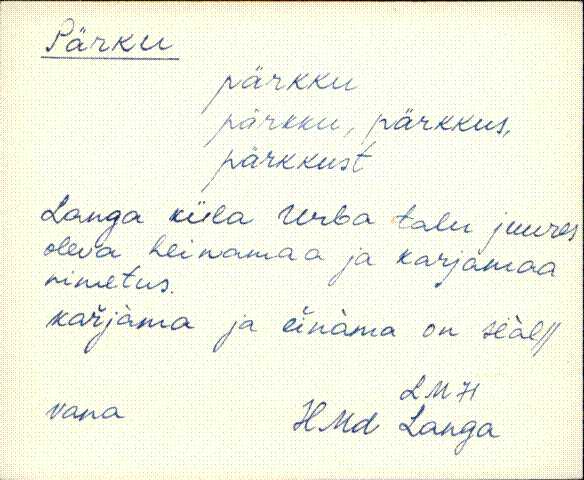 Pärku
pärkku
pärkku, pärkkus,
pärkkust
Langa küla Urba talu juures
oleva heinamaa ja karjamaa
nimetus.
karjàma ja einàma on sēàl//
LM71
vana HMd Langa